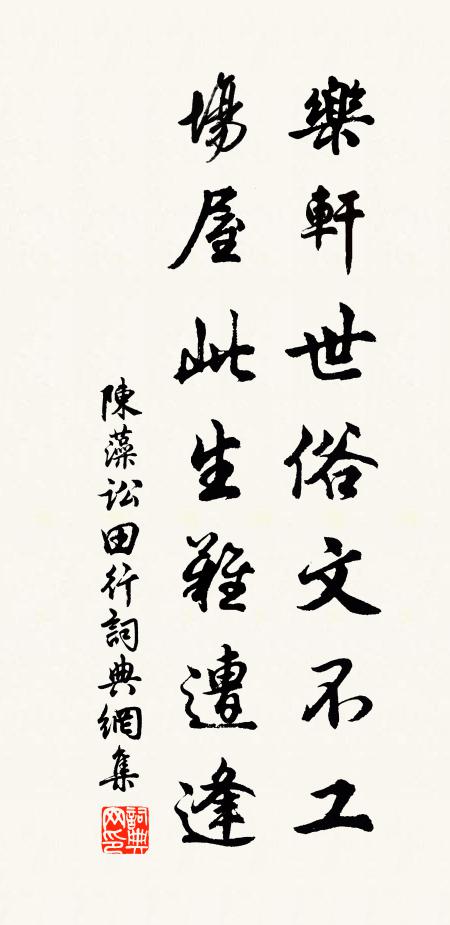 樂軒世俗文不工
場屋此生難遭逢
陳藻訟田行詞典網集
詞典网印